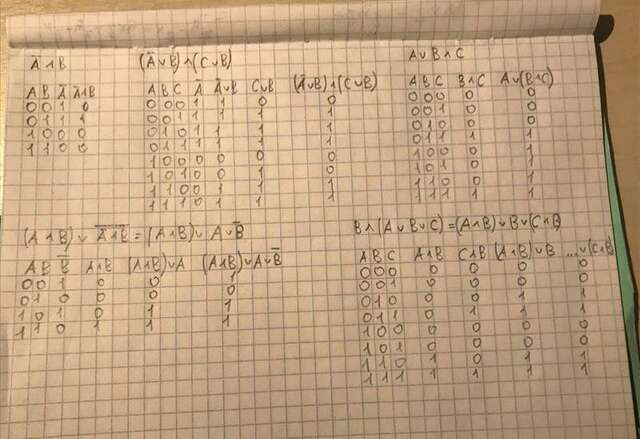 Ā∧B
A B Ā Ā∧B
0 0 1 0
0 1 1 1
1 0 0 0
1 1 0 0
(Ā∨B)∧(C∨B)
A B C Ā Ā∨B C∨B (Ā∨B)∧(C∨B)
0 0 0 1 1 0 0
0 0 1 1 1 1 1
0 1 0 1 1 1 1
0 1 1 1 1 1 1
1 0 0 0 0 0 0
1 0 1 0 0 1 0
1 1 0 0 1 1 1
1 1 1 0 1 1 1
A∨B∧C
A B C B∧C A∨(B∧C)
0 0 0 0 0
0 0 1 0 0
0 1 0 0 0
0 1 1 1 1
1 0 0 0 1
1 0 1 0 1
1 1 0 0 1
1 1 1 1 1
(A∧B)∨ Ā̅∧̅B̅ = (A∧B)∨ A∨B̅
A B B̅ A∧B (A∧B)∨A (A∧B)∨A∨B̅
0 0 1 0 0 1
0 1 0 0 0 0
1 0 1 0 1 1
1 1 0 1 1 1
B∧(A∨B∨C)=(A∧B)∨B∨(C∧B)
A B C A∧B C∧B (A∧B)∨B ...∨(C∧B)
0 0 0 0 0 0 0
0 0 1 0 0 0 0
0 1 0 0 0 1 1
0 1 1 0 1 1 1
1 0 0 0 0 0 0
1 0 1 0 0 0 0
1 1 0 1 0 1 1
1 1 1 1 1 1 1